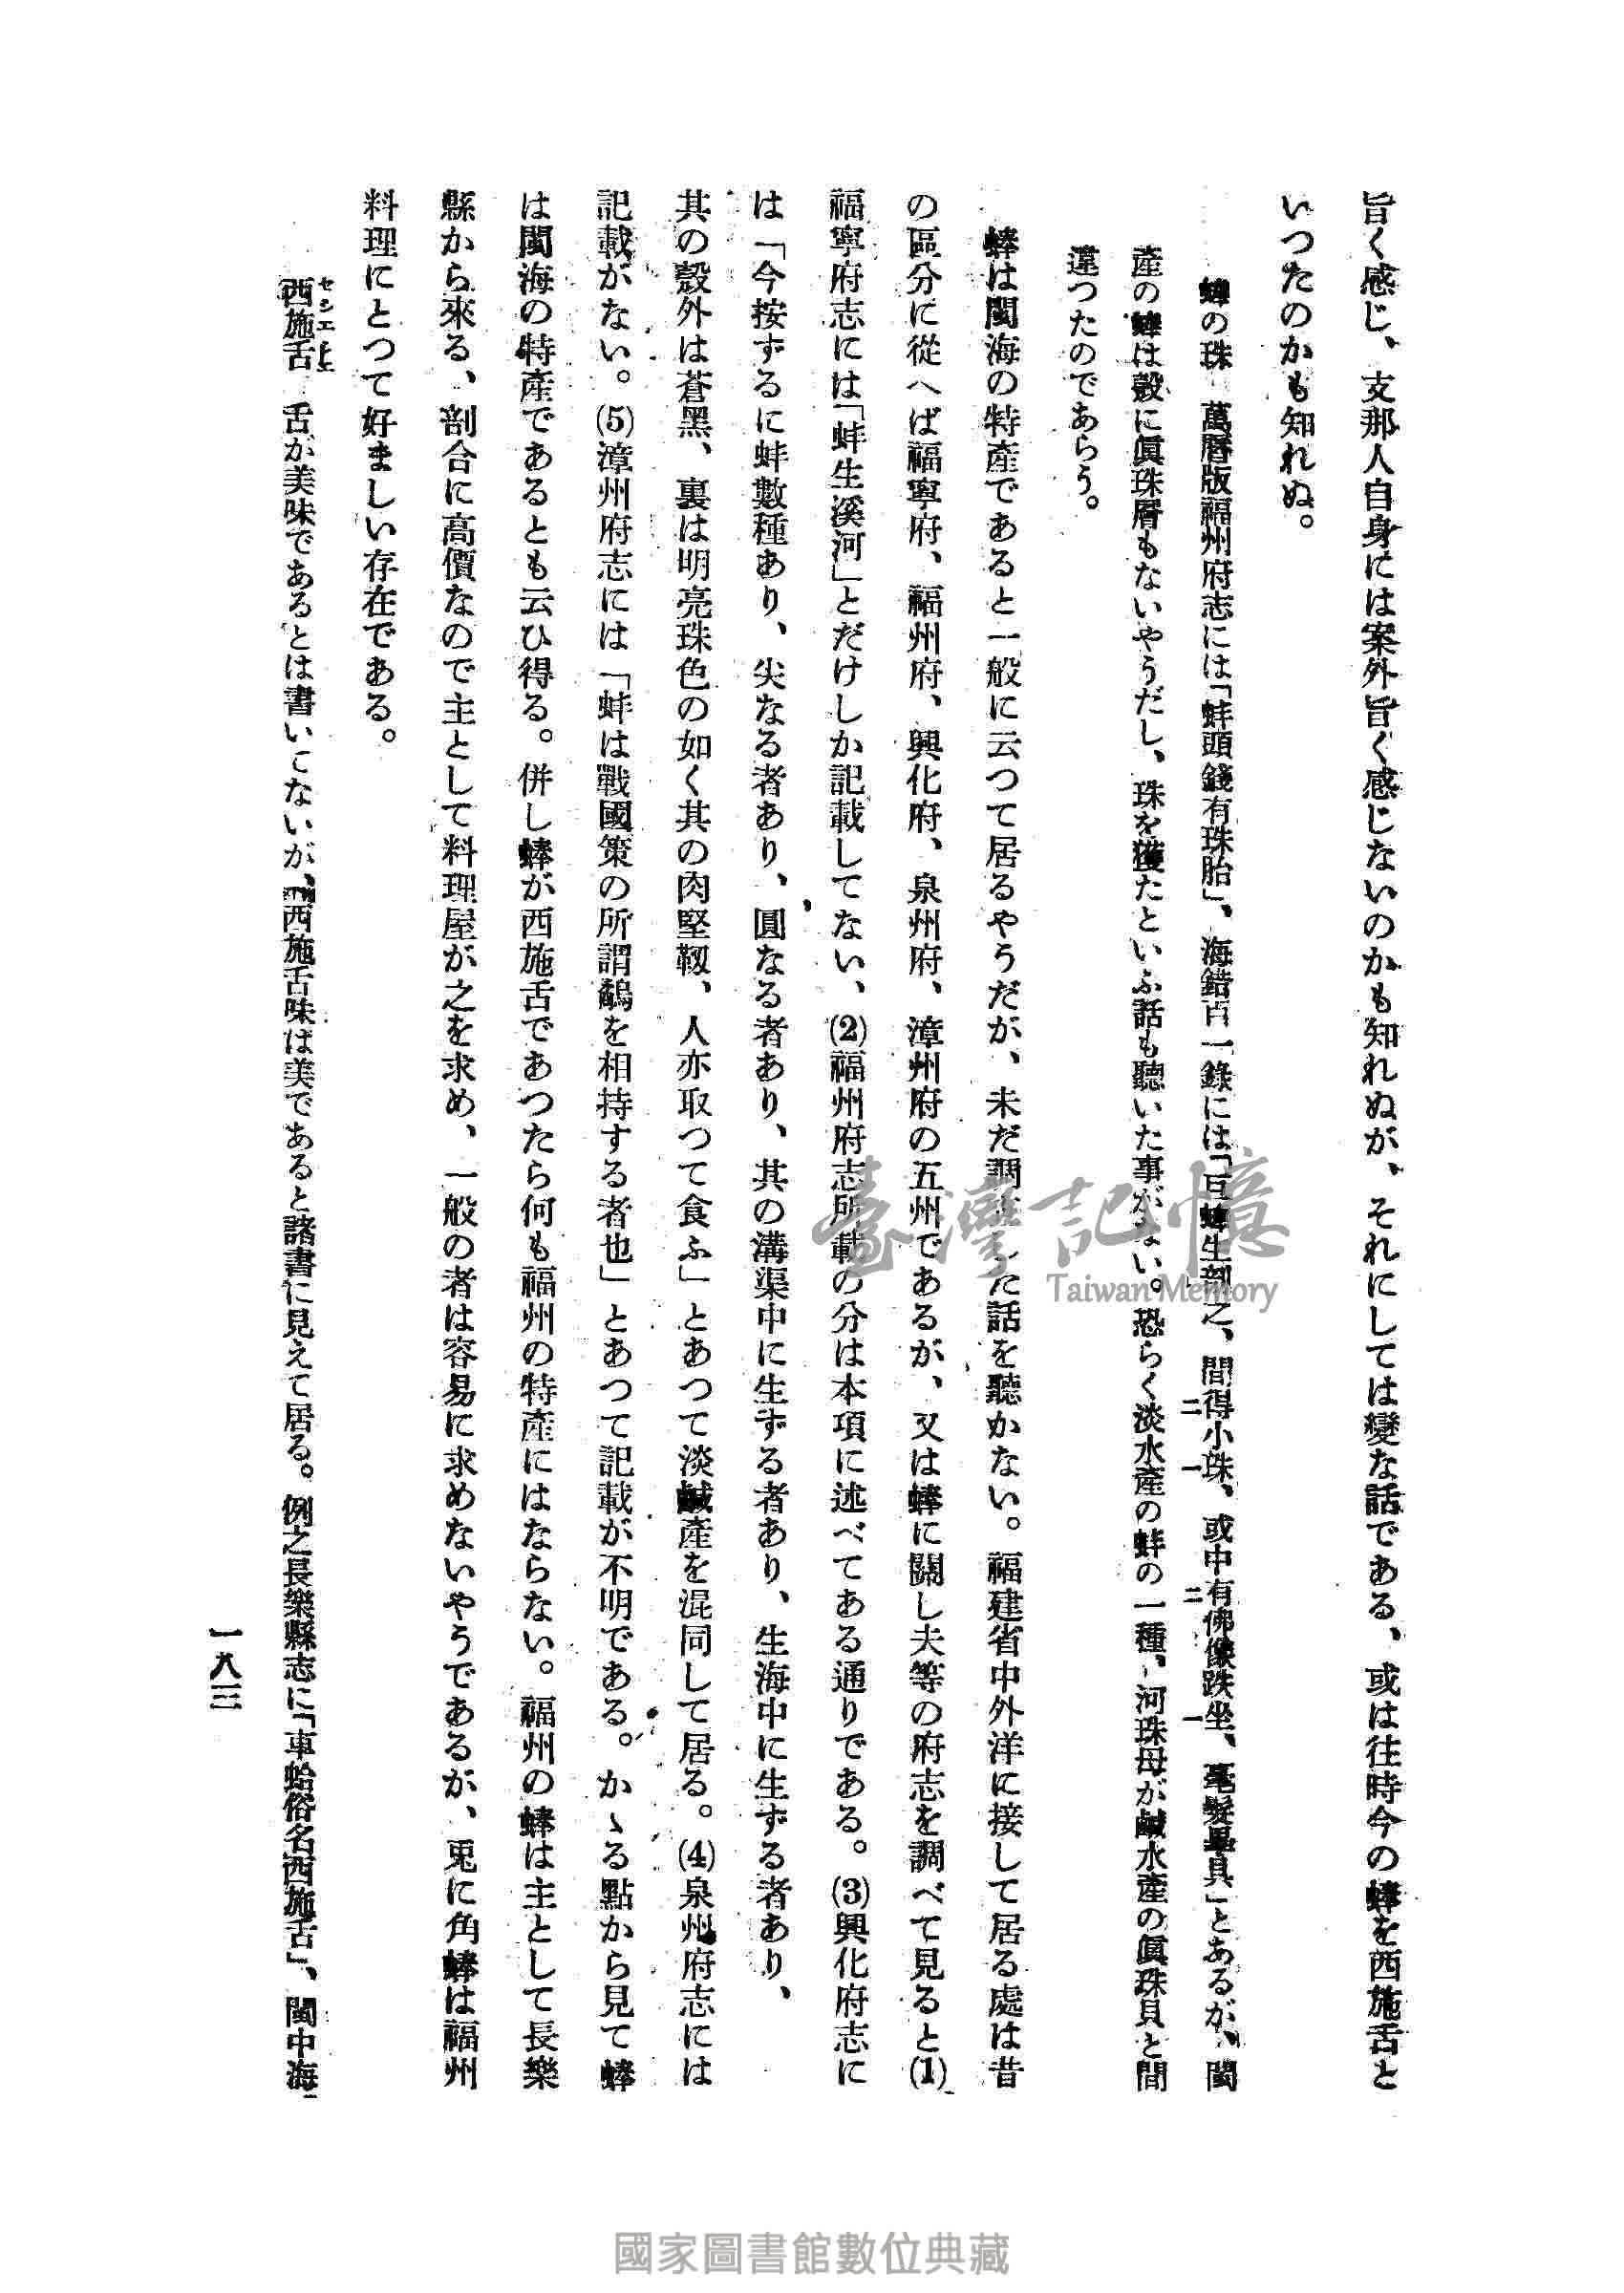 旨く感じ、支那人自身には案外旨く感じないのかも知れぬが、それにしては變な話である、或は往時今の蜯を西施舌と
いつたのかも知れぬ。
蟳の珠 萬曆版福州府志には「蚌頭錢有珠胎」、海錯百一錄には「巨蜯生剖之、間得小珠、或中有佛像趺坐、毫髮畢具」とあるが、閩
產の蜯は殼に眞珠層もないやうだし、珠を獲たといふ話も聽いた事がない。恐らく淡水產の蚌の一種、河珠母が鹹水產の眞珠貝と間
違つたのであらう。
蜯は閩海の特產であると一般に云つて居るやうだが、未だ調した話を聽かない。福建省中外洋に接して居る處は昔
の區分に從へば福寧府、福州府、興化府、泉州府、漳州府の五州であるが、又は蜯に關し夫等の府志を調べて見ると(1)
福寧府志には「蚌生溪河」とだけしか記載してない、(2)福州府志所載の分は本項に述べてある通りである。(3)興化府志に
は「今按ずるに蚌數種あり、尖なる者あり、圓なる者あり、其の溝渠中に生ずる者あり、生海中に生ずる者あり、
其の殼外は蒼黑、裏は明亮珠色の如く其の肉堅靱、人亦取つて食ふ」とあつて淡鹹產を混同して居る。(4)泉州府志には
記載がない。(5)漳州府志には「蚌は戰國策の所謂鷸を相持する者也」とあつて記載が不明である。かゝる點から見て蜯
は閩海の特產であるとも云ひ得る。併し蜯が西施舌であつたら何も福州の特產にはならない。福州の蜯は主として長樂
縣から來る、剖合に高價なので主として料理屋が之を求め、一般の者は容易に求めないやうであるが、兎に角蜯は福州
料理にとつて好ましい存在である。
西施舌 舌が美味であるとは書いてないが、「西施舌味は美であると諸書に見えて居る。例之長樂縣志に「車蛤俗名西施舌」、閩中海
一八三
臺灣記憶
Taiwan Memory
國家圖書館數位典藏